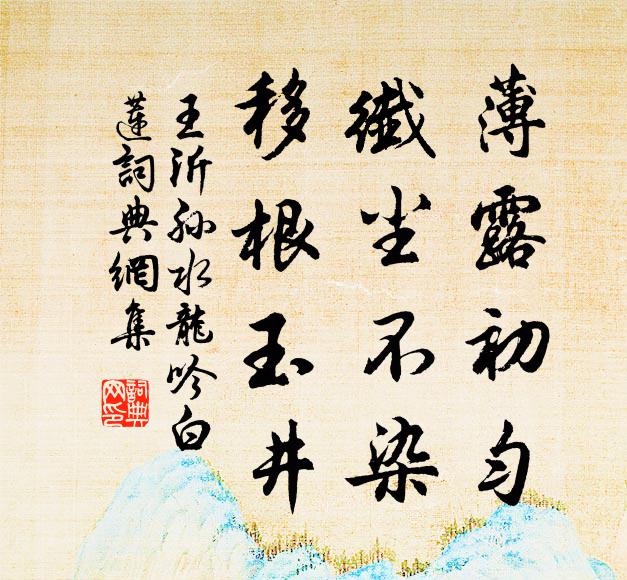 薄露初匀
纖尘不染
移根玉井
王沂孙水龍吟白
蓮詞典網集
詞典
网印